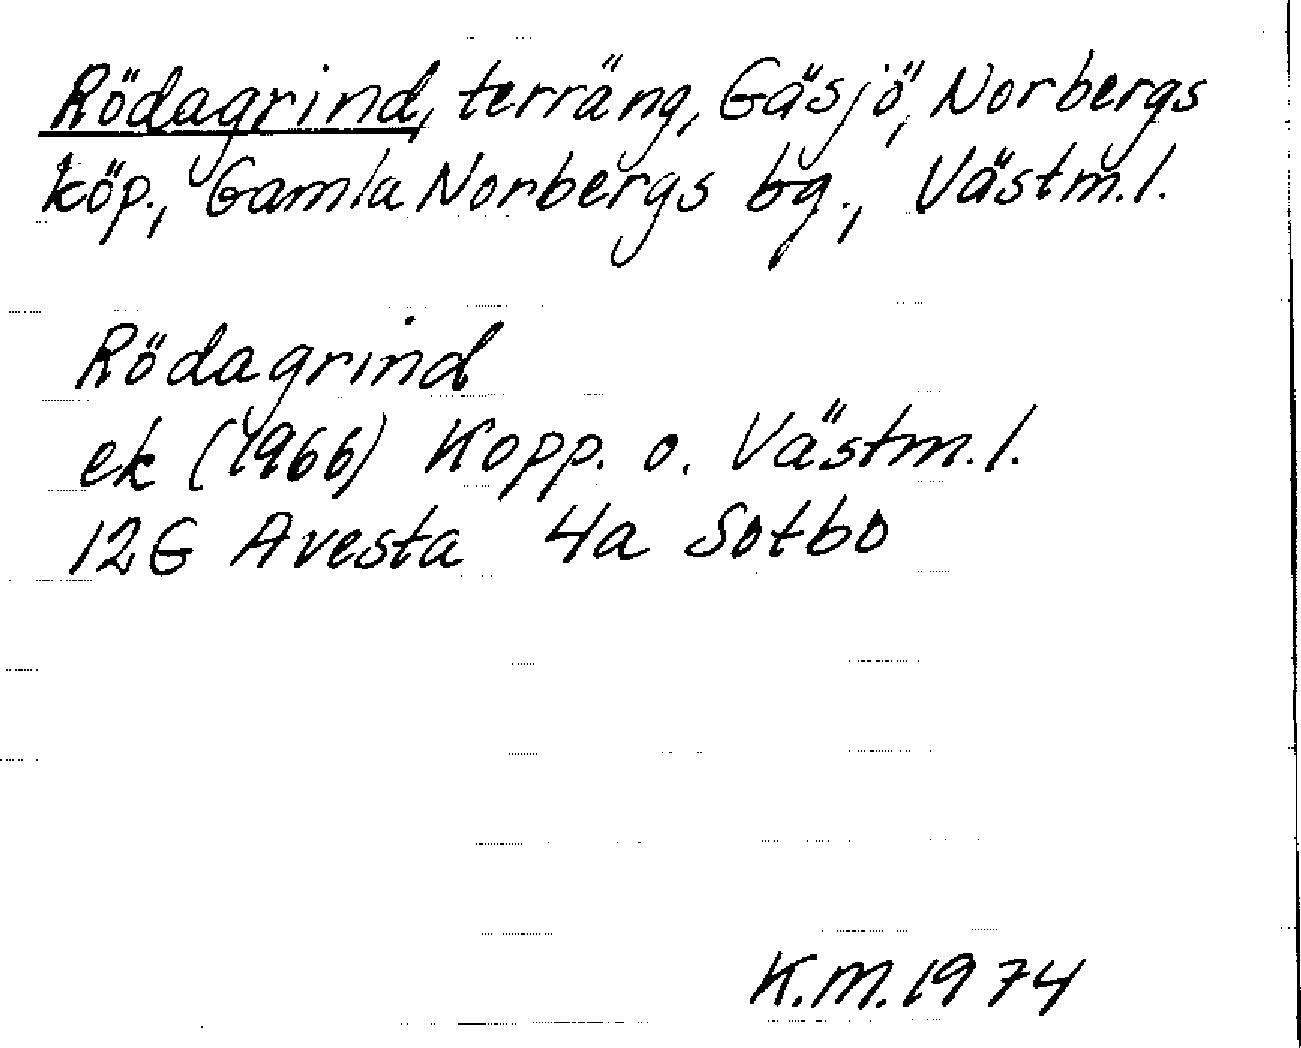 Rödagrind, terräng, Gäsjö, Norbergs
köp., Gamla Norbergs bg., Västm.l.
Rödagrind
ek (1966) Kopp. o. Västm.l.
12G Avesta 4a Sotbo
K.M.1974